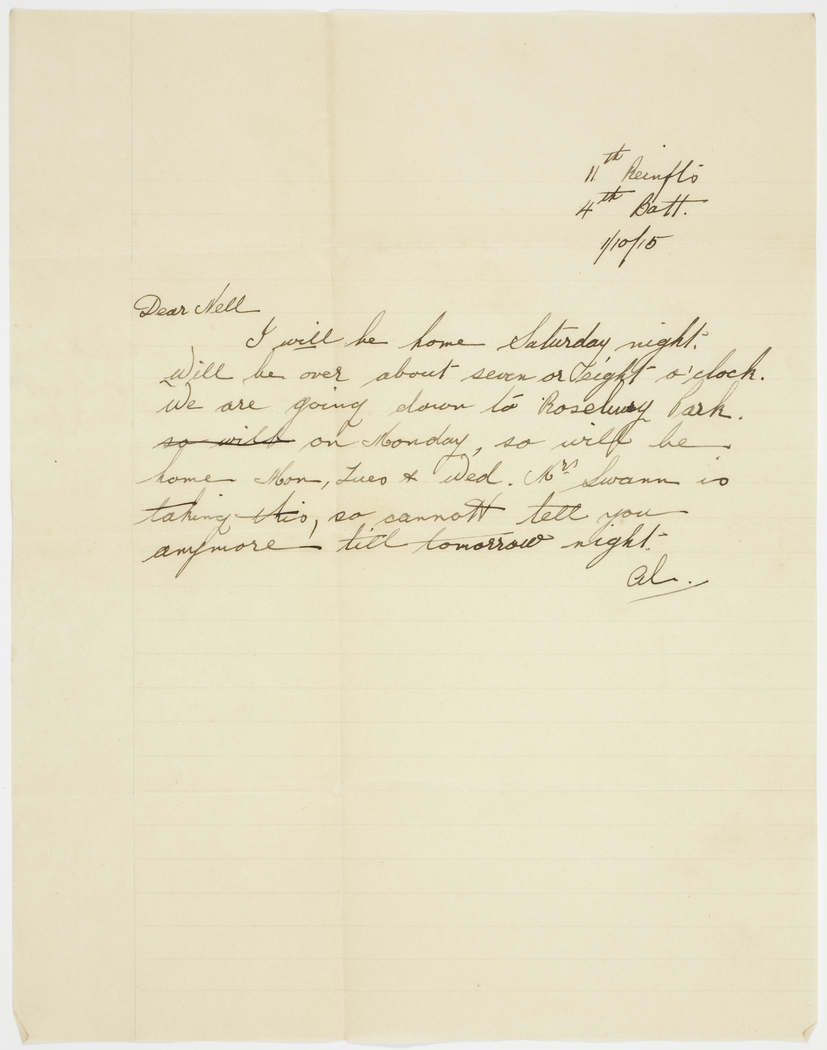 11th Reinfts
4th Batt.
1/10/15
Dear Nell
I will be home Saturday night.
Will be over about seven or eight o'clock.
We are going down to Rosebury Park.
so will on Monday, so will be
home Mon, Tues & Wed. Mrs Swann is
taking this, so cannott tell you
anymore till tomorrow night.
Al.